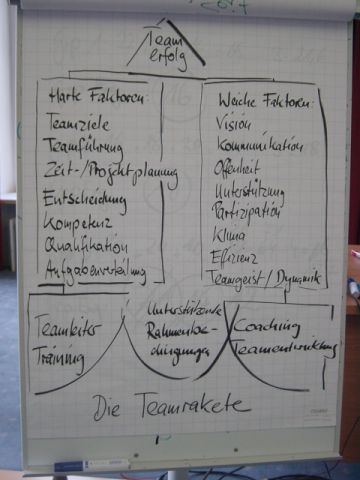 Team
erfolg
Harte Faktoren:
Teamziele
Teamführung
Zeit-/Projektplanung
Entscheidung
Kompetenz
Qualifikation
Aufgabenverteilung
Weiche Faktoren:
Vision
Kommunikation
Offenheit
Unterstützung
Partizipation
Klima
Effizienz
Teamgeist/Dynamik
Teamleiter
Training
Unterstützende
Rahmenbe-
dingungen
Coaching
Teamentwicklung
Die Teamrakete